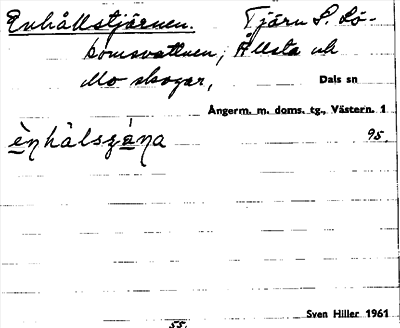 Enhållstjärnen. Tjärn S. Lö-
komsvattnen; Ållsta uh
Mo skogar, Dals sn
Ångerm. m. doms. tg., Västern. 1
ènhålsʒána 95.
Sven Hiller 1961
55.